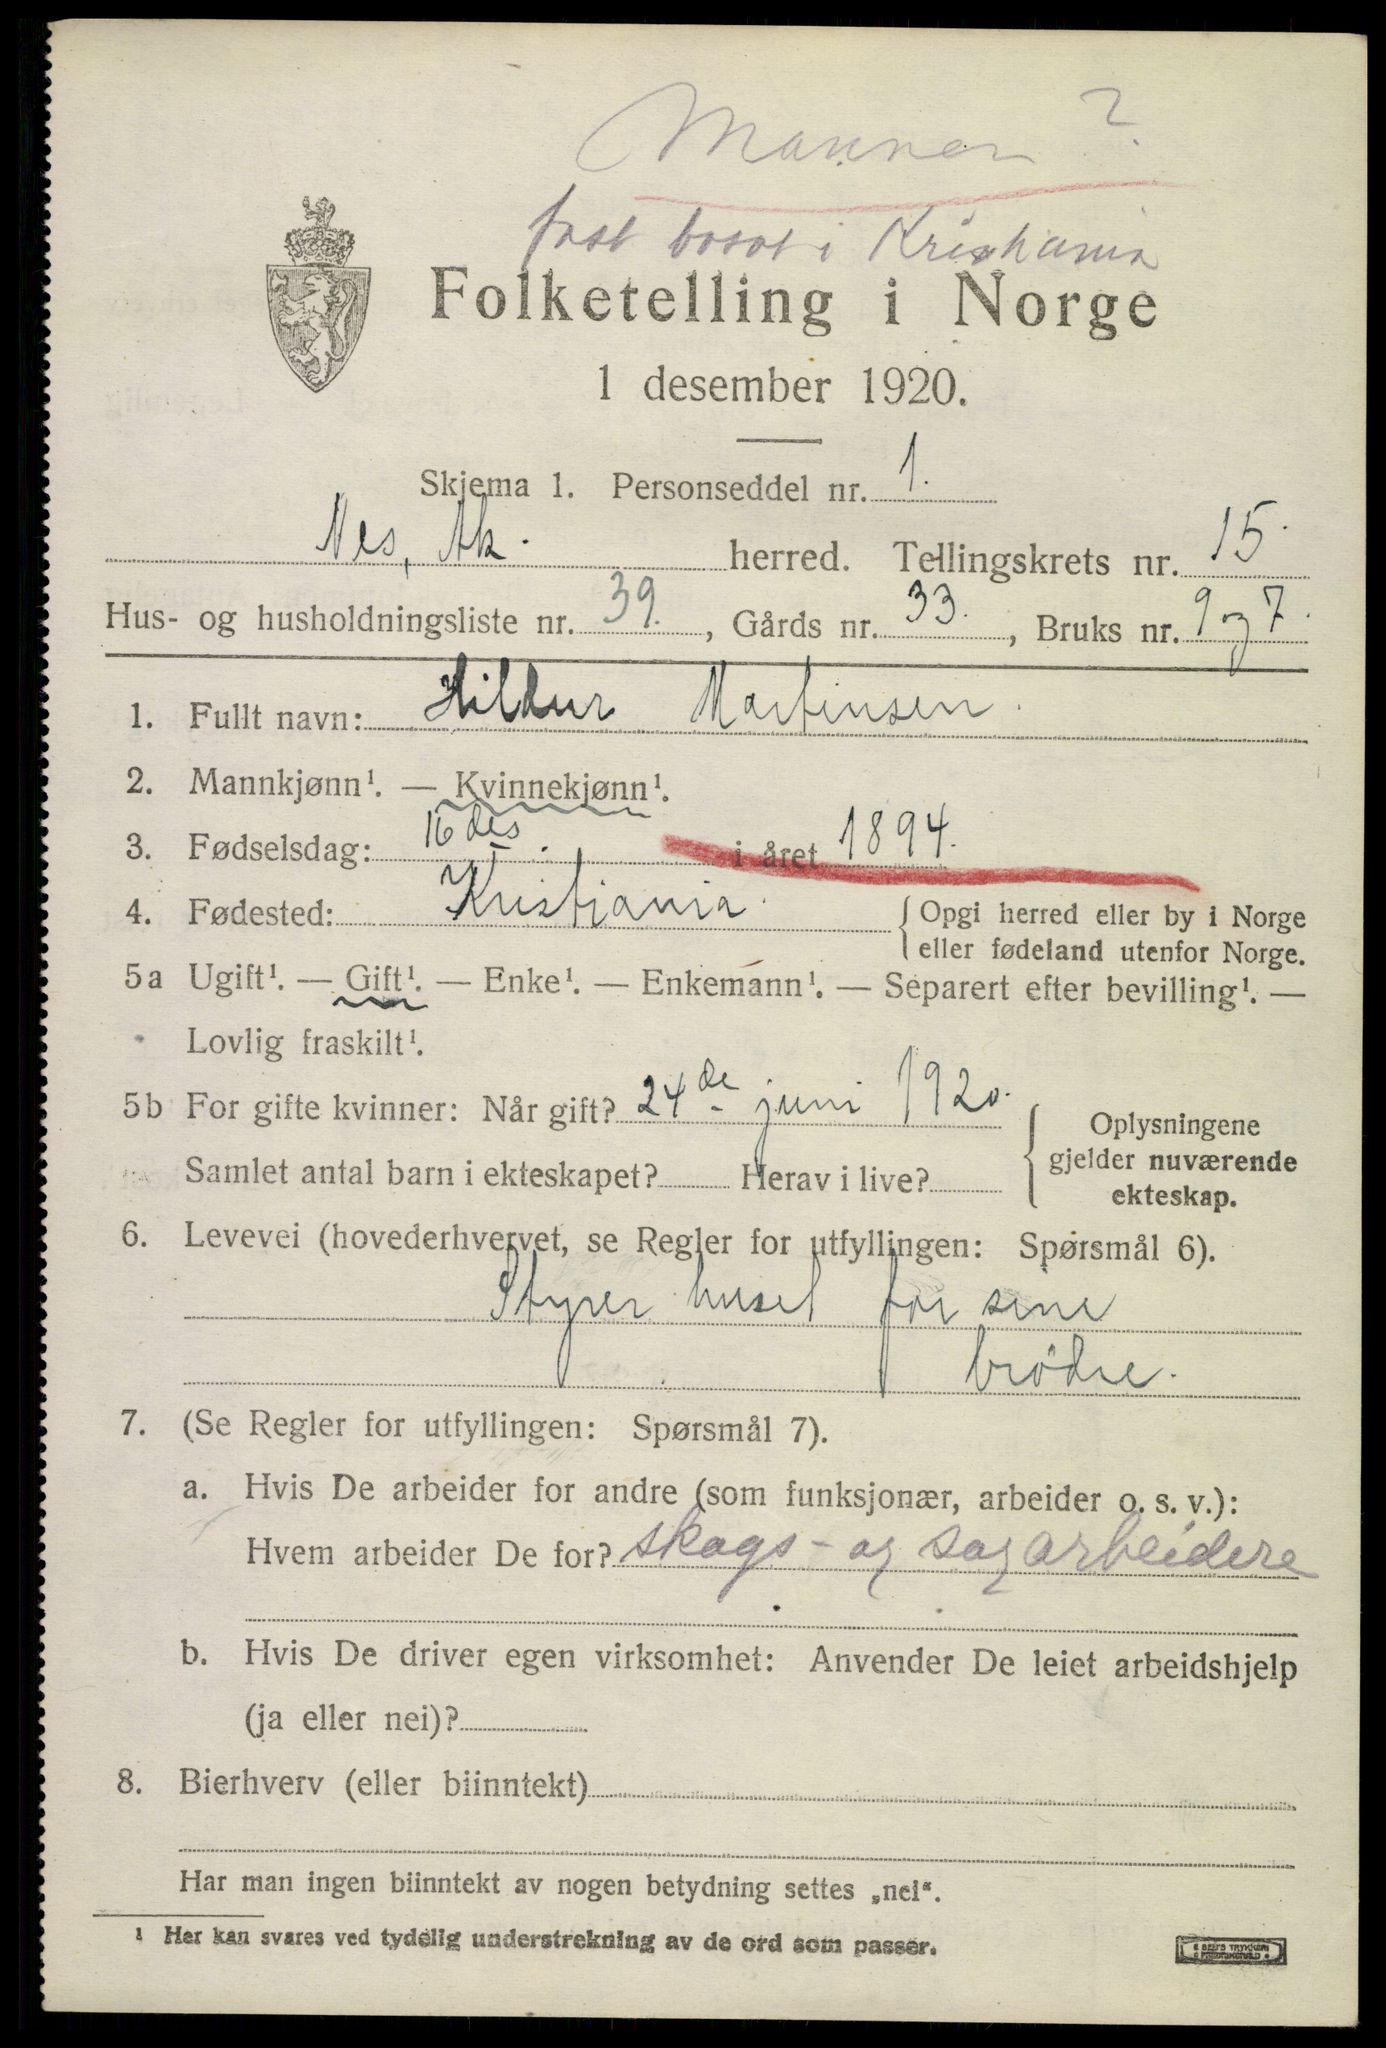 Mannen?
fast bosat i Kristiania
Folketelling i Norge
1 desember 1920.
Skjema 1. Personseddel nr. 1.
Nes, Ak. herred. Tellingskrets nr. 15.
Hus- og husholdningsliste nr. 39., Gårds nr. 33., Bruks nr. 9 og 7.
1. Fullt navn: Hildur Martinsen.
2. Mannkjønn¹. — Kvinnekjønn¹.
3. Fødselsdag: 16 des. i året 1894.
4. Fødested: Kristiania. { Opgi herred eller by i Norge
eller fødeland utenfor Norge.
5a Ugift¹. — Gift¹. — Enke¹. — Enkemann¹. — Separert efter bevilling¹. —
Lovlig fraskilt¹.
5b For gifte kvinner: Når gift? 24de juni 1920.
Samlet antal barn i ekteskapet? Herav i live?
{ Oplysningene
gjelder nuværende
ekteskap.
6. Levevei (hovederhvervet, se Regler for utfyllingen: Spørsmål 6).
Styrer huset for sine
brödre.
7. (Se Regler for utfyllingen: Spørsmål 7).
a. Hvis De arbeider for andre (som funksjonær, arbeider o. s. v.):
Hvem arbeider De for? skogs- og sagarbeidere
b. Hvis De driver egen virksomhet: Anvender De leiet arbeidshjelp
(ja eller nei)?
8. Bierhverv (eller biinntekt)
Har man ingen biinntekt av nogen betydning settes „nei“.
¹ Her kan svares ved tydelig understrekning av de ord som passer.